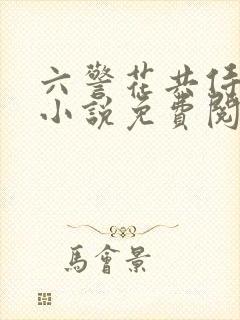 六警花共侍
小說免費閱
馬會景